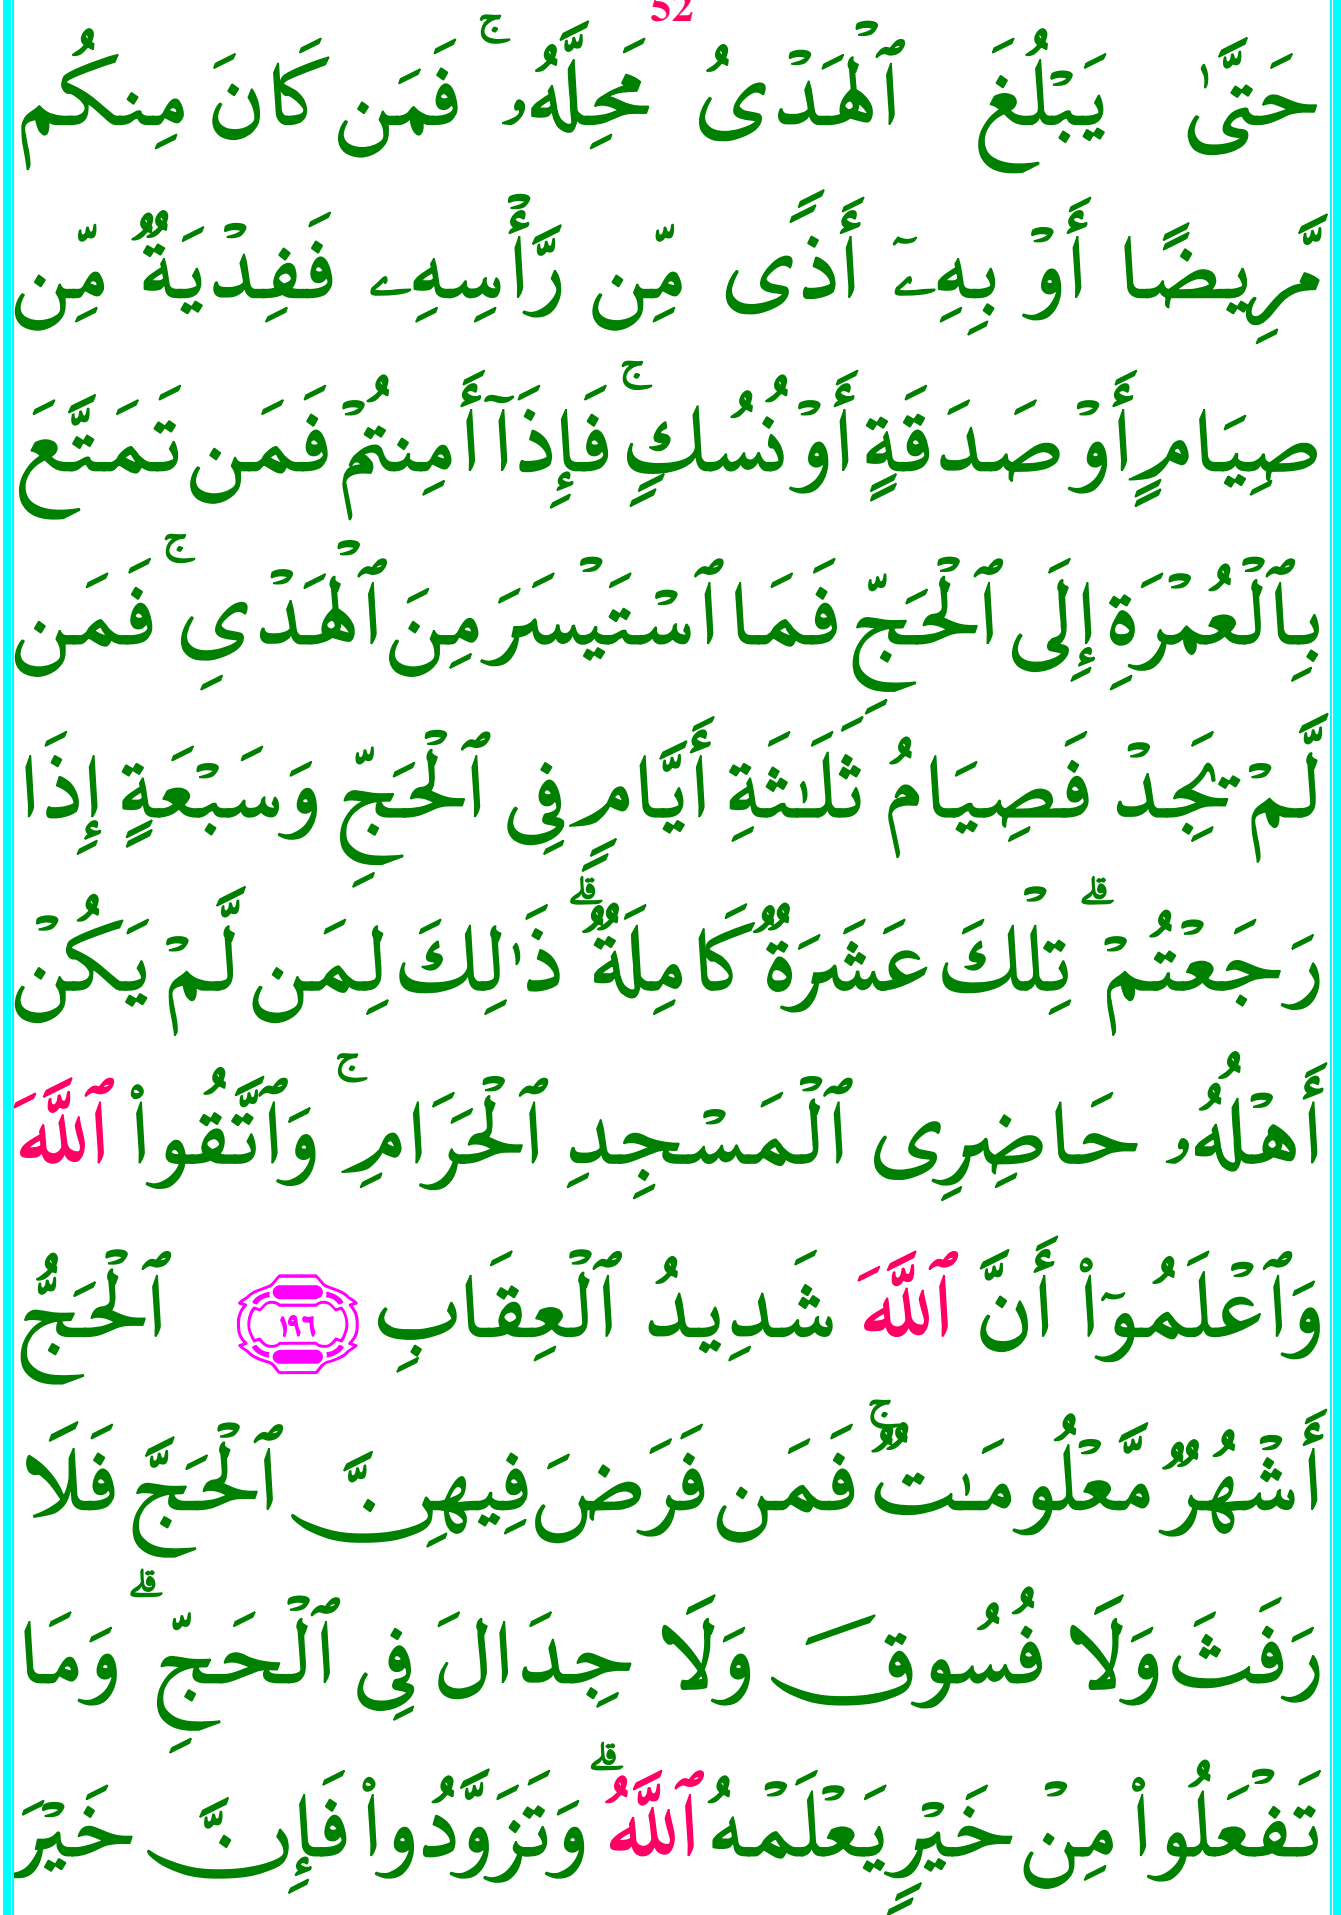 52
حَتَّىٰ يَبۡلُغَ ٱلۡهَدۡىُ مَحِلَّهُۥۚ فَمَن كَانَ مِنكُم
مَّرِيضًا أَوۡ بِهِۦٓ أَذًى مِّن رَّأۡسِهِۦ فَفِدۡيَةٌ مِّن
صِيَامٍ أَوۡ صَدَقَةٍ أَوۡ نُسُكٍۚ فَإِذَآ أَمِنتُمۡ فَمَن تَمَتَّعَ
بِٱلۡعُمۡرَةِ إِلَى ٱلۡحَجِّ فَمَا ٱسۡتَيۡسَرَ مِنَ ٱلۡهَدۡىِۚ فَمَن
لَّمۡ يَجِدۡ فَصِيَامُ ثَلَـٰثَةِ أَيَّامٍ فِى ٱلۡحَجِّ وَسَبۡعَةٍ إِذَا
رَجَعۡتُمۡۗ تِلۡكَ عَشَرَةٌ كَامِلَةٌۗ ذَٰلِكَ لِمَن لَّمۡ يَكُنۡ
أَهۡلُهُۥ حَاضِرِى ٱلۡمَسۡجِدِ ٱلۡحَرَامِۚ وَٱتَّقُوا۟ ٱللَّهَ
وَٱعۡلَمُوٓا۟ أَنَّ ٱللَّهَ شَدِيدُ ٱلۡعِقَابِ ١٩٦ ٱلۡحَجُّ
أَشۡهُرٌ مَّعۡلُومَـٰتٌۚ فَمَن فَرَضَ فِيهِنَّ ٱلۡحَجَّ فَلَا
رَفَثَ وَلَا فُسُوقَ وَلَا جِدَالَ فِى ٱلۡحَجِّۗ وَمَا
تَفۡعَلُوا۟ مِنۡ خَيۡرٍ يَعۡلَمۡهُ ٱللَّهُۗ وَتَزَوَّدُوا۟ فَإِنَّ خَيۡرَ